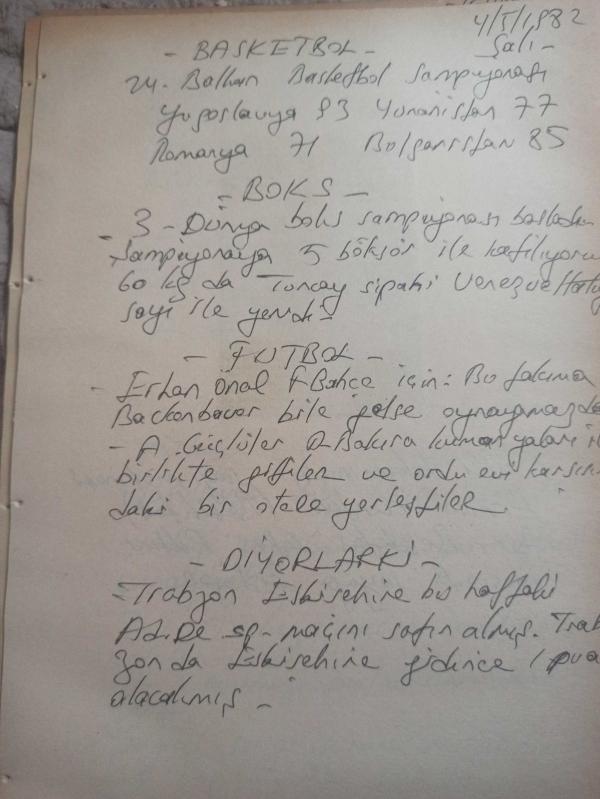 4/5/1982
Salı -
- BASKETBOL -
24. Balkan Basketbol Şampiyonası
Yugoslavya 93 Yunanistan 77
Romanya 71 Bolgaristan 85
- BOKS -
- 3 - Dünya boks şampiyonası başladı
Şampiyonaya 5 böksör ile katılıyoru
60 kg da Tuncay Sipahi
sayı ile yendi
- FUTBOL -
- Erhan Önal F.Bahçe için: Bu takıma
Backenbauer bile gelse oynayamazdı
- A. Güçlüler D.Bakıra kumanyaları i
birlikte gittiler ve ordu evi karşın
daki bir otele yerleştiler.
- DİYORLARKİ -
- Trabzon Eskişehire bu haftaki
maçını satın almış. Trab
zonda Eskişehire gidince 1 pua
alacakmış -